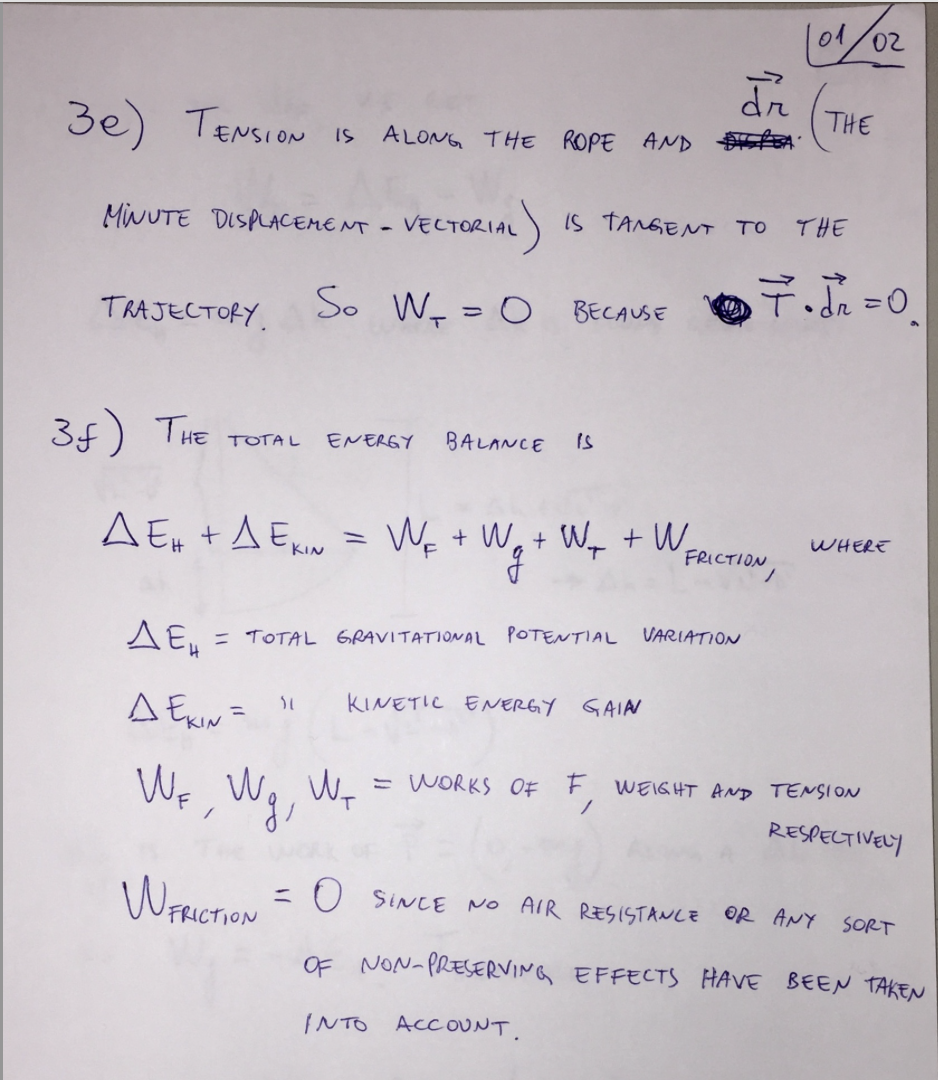 01/02
3e) TENSION IS ALONG THE ROPE AND dr⃗ (THE
MINUTE DISPLACEMENT - VECTORIAL) IS TANGENT TO THE
TRAJECTORY. SO W_T = 0 BECAUSE T⃗ · dr⃗ = 0.
3f) THE TOTAL ENERGY BALANCE IS
ΔE_H + ΔE_KIN = W_F + W_g + W_T + W_FRICTION, WHERE
ΔE_H = TOTAL GRAVITATIONAL POTENTIAL VARIATION
ΔE_KIN = " KINETIC ENERGY GAIN
W_F, W_g, W_T = WORKS OF F, WEIGHT AND TENSION
RESPECTIVELY
W_FRICTION = 0 SINCE NO AIR RESISTANCE OR ANY SORT
OF NON-PRESERVING EFFECTS HAVE BEEN TAKEN
INTO ACCOUNT.